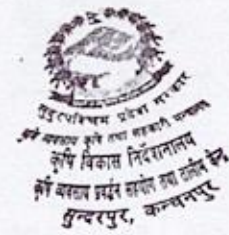 सुदूरपश्चिम प्रदेश सरकार
भूमि व्यवस्था कृषि तथा सहकारी मन्त्रालय
कृषि विकास निर्देशनालय
कृषि व्यवसाय प्रवर्द्धन सहयोग तथा तालीम केन्द्र
सुन्दरपुर, कञ्चनपुर